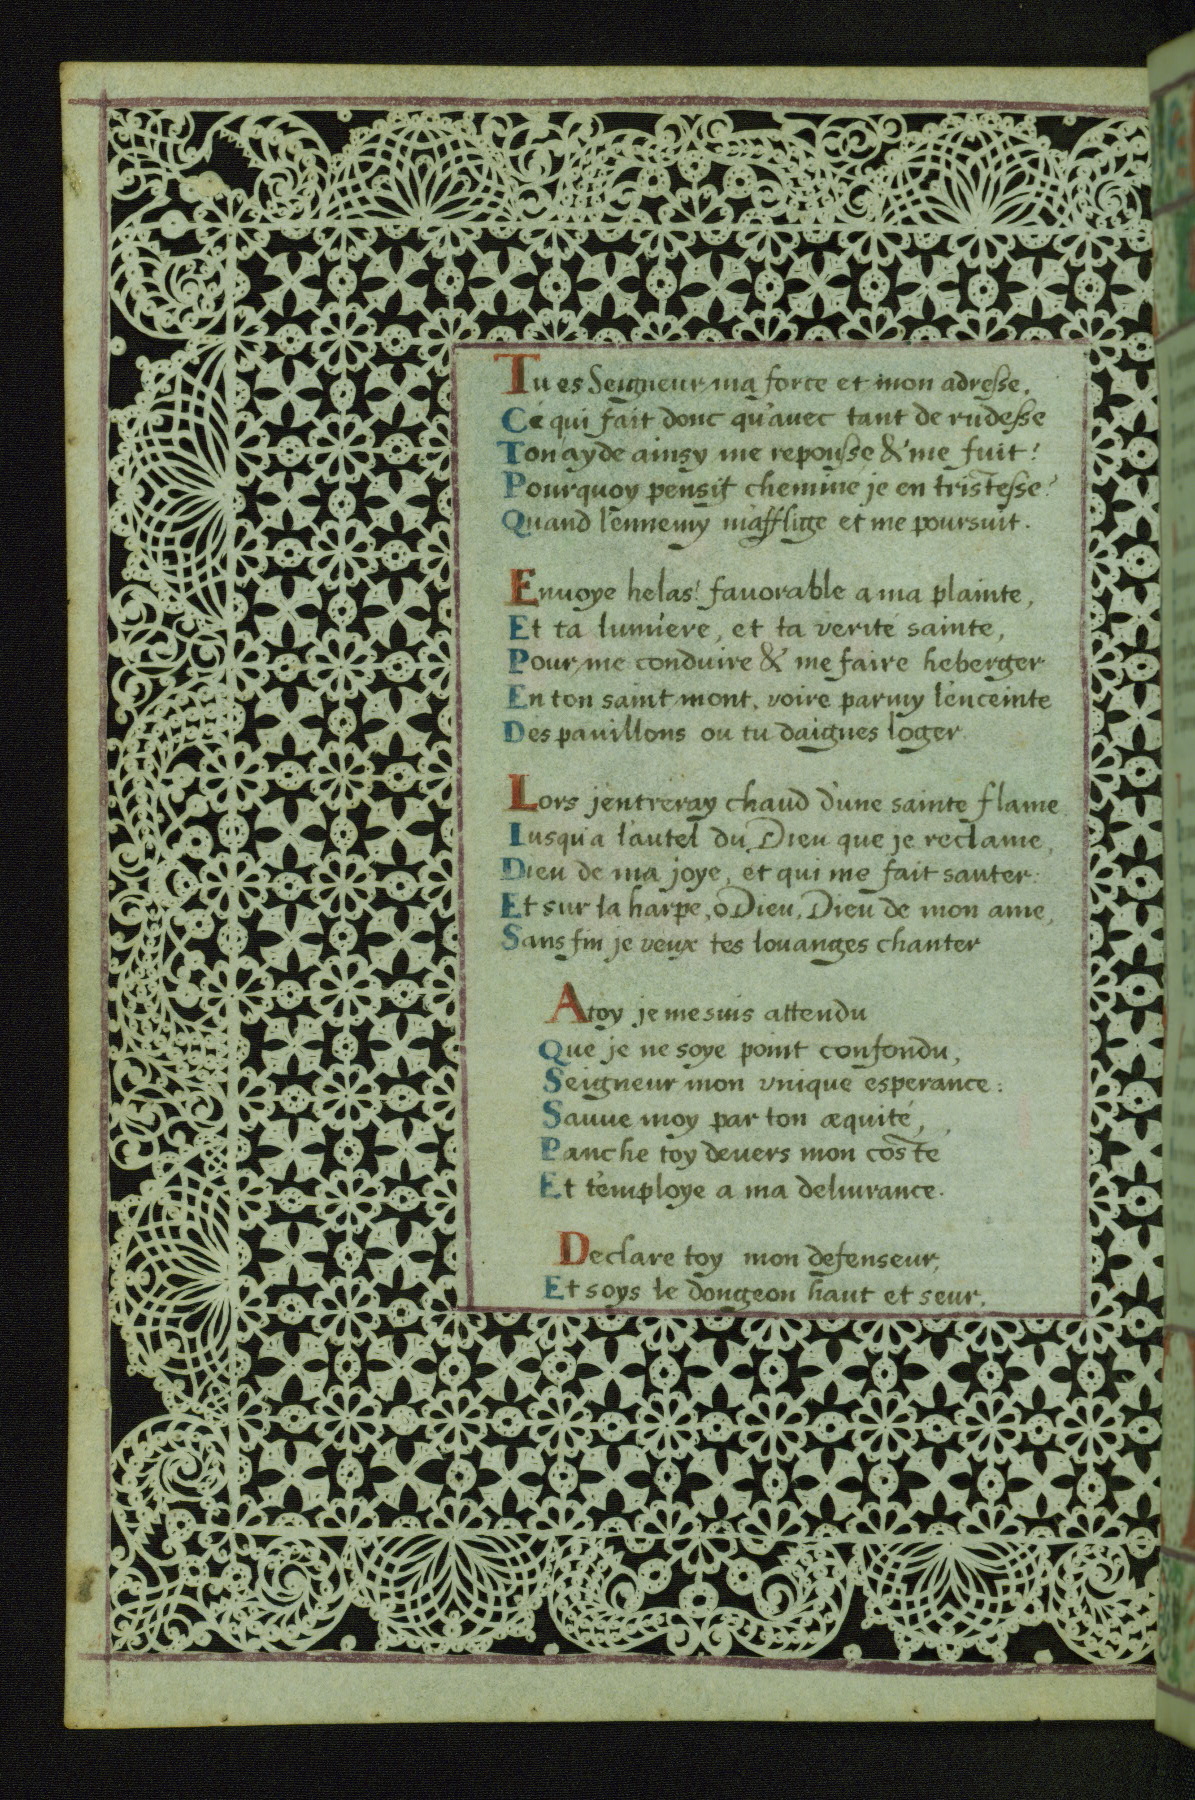 Tu es Seigneur ma force et mon adresse.
Ce qui fait donc qu'auec tant de rudesse
Ton ayde ainsy me repousse & me fuit?
Pourquoy pensif chemine je en tristesse?
Quand l'ennemy m'afflige et me poursuit.
Enuoye helas! fauorable a ma plainte,
Et ta lumiere, et ta verité sainte,
Pour me conduire & me faire heberger
En ton saint mont, voire parmy l'enceinte
Des pauillons ou tu daignes loger.
Lors j'entreray chaud d'une sainte flame
Iusqu'a l'autel du Dieu que je reclame,
Dieu de ma joye, et qui me fait sauter:
Et sur la harpe, o Dieu, Dieu de mon ame,
Sans fin je veux tes louanges chanter
A toy je me suis attendu
Que je ne soye point confondu,
Seigneur mon vnique esperance:
Sauue moy par ton æquité,
Panche toy deuers mon costé
Et t'employe a ma deliurance.
Declare toy mon defenseur,
Et soys le dongeon haut et seur.